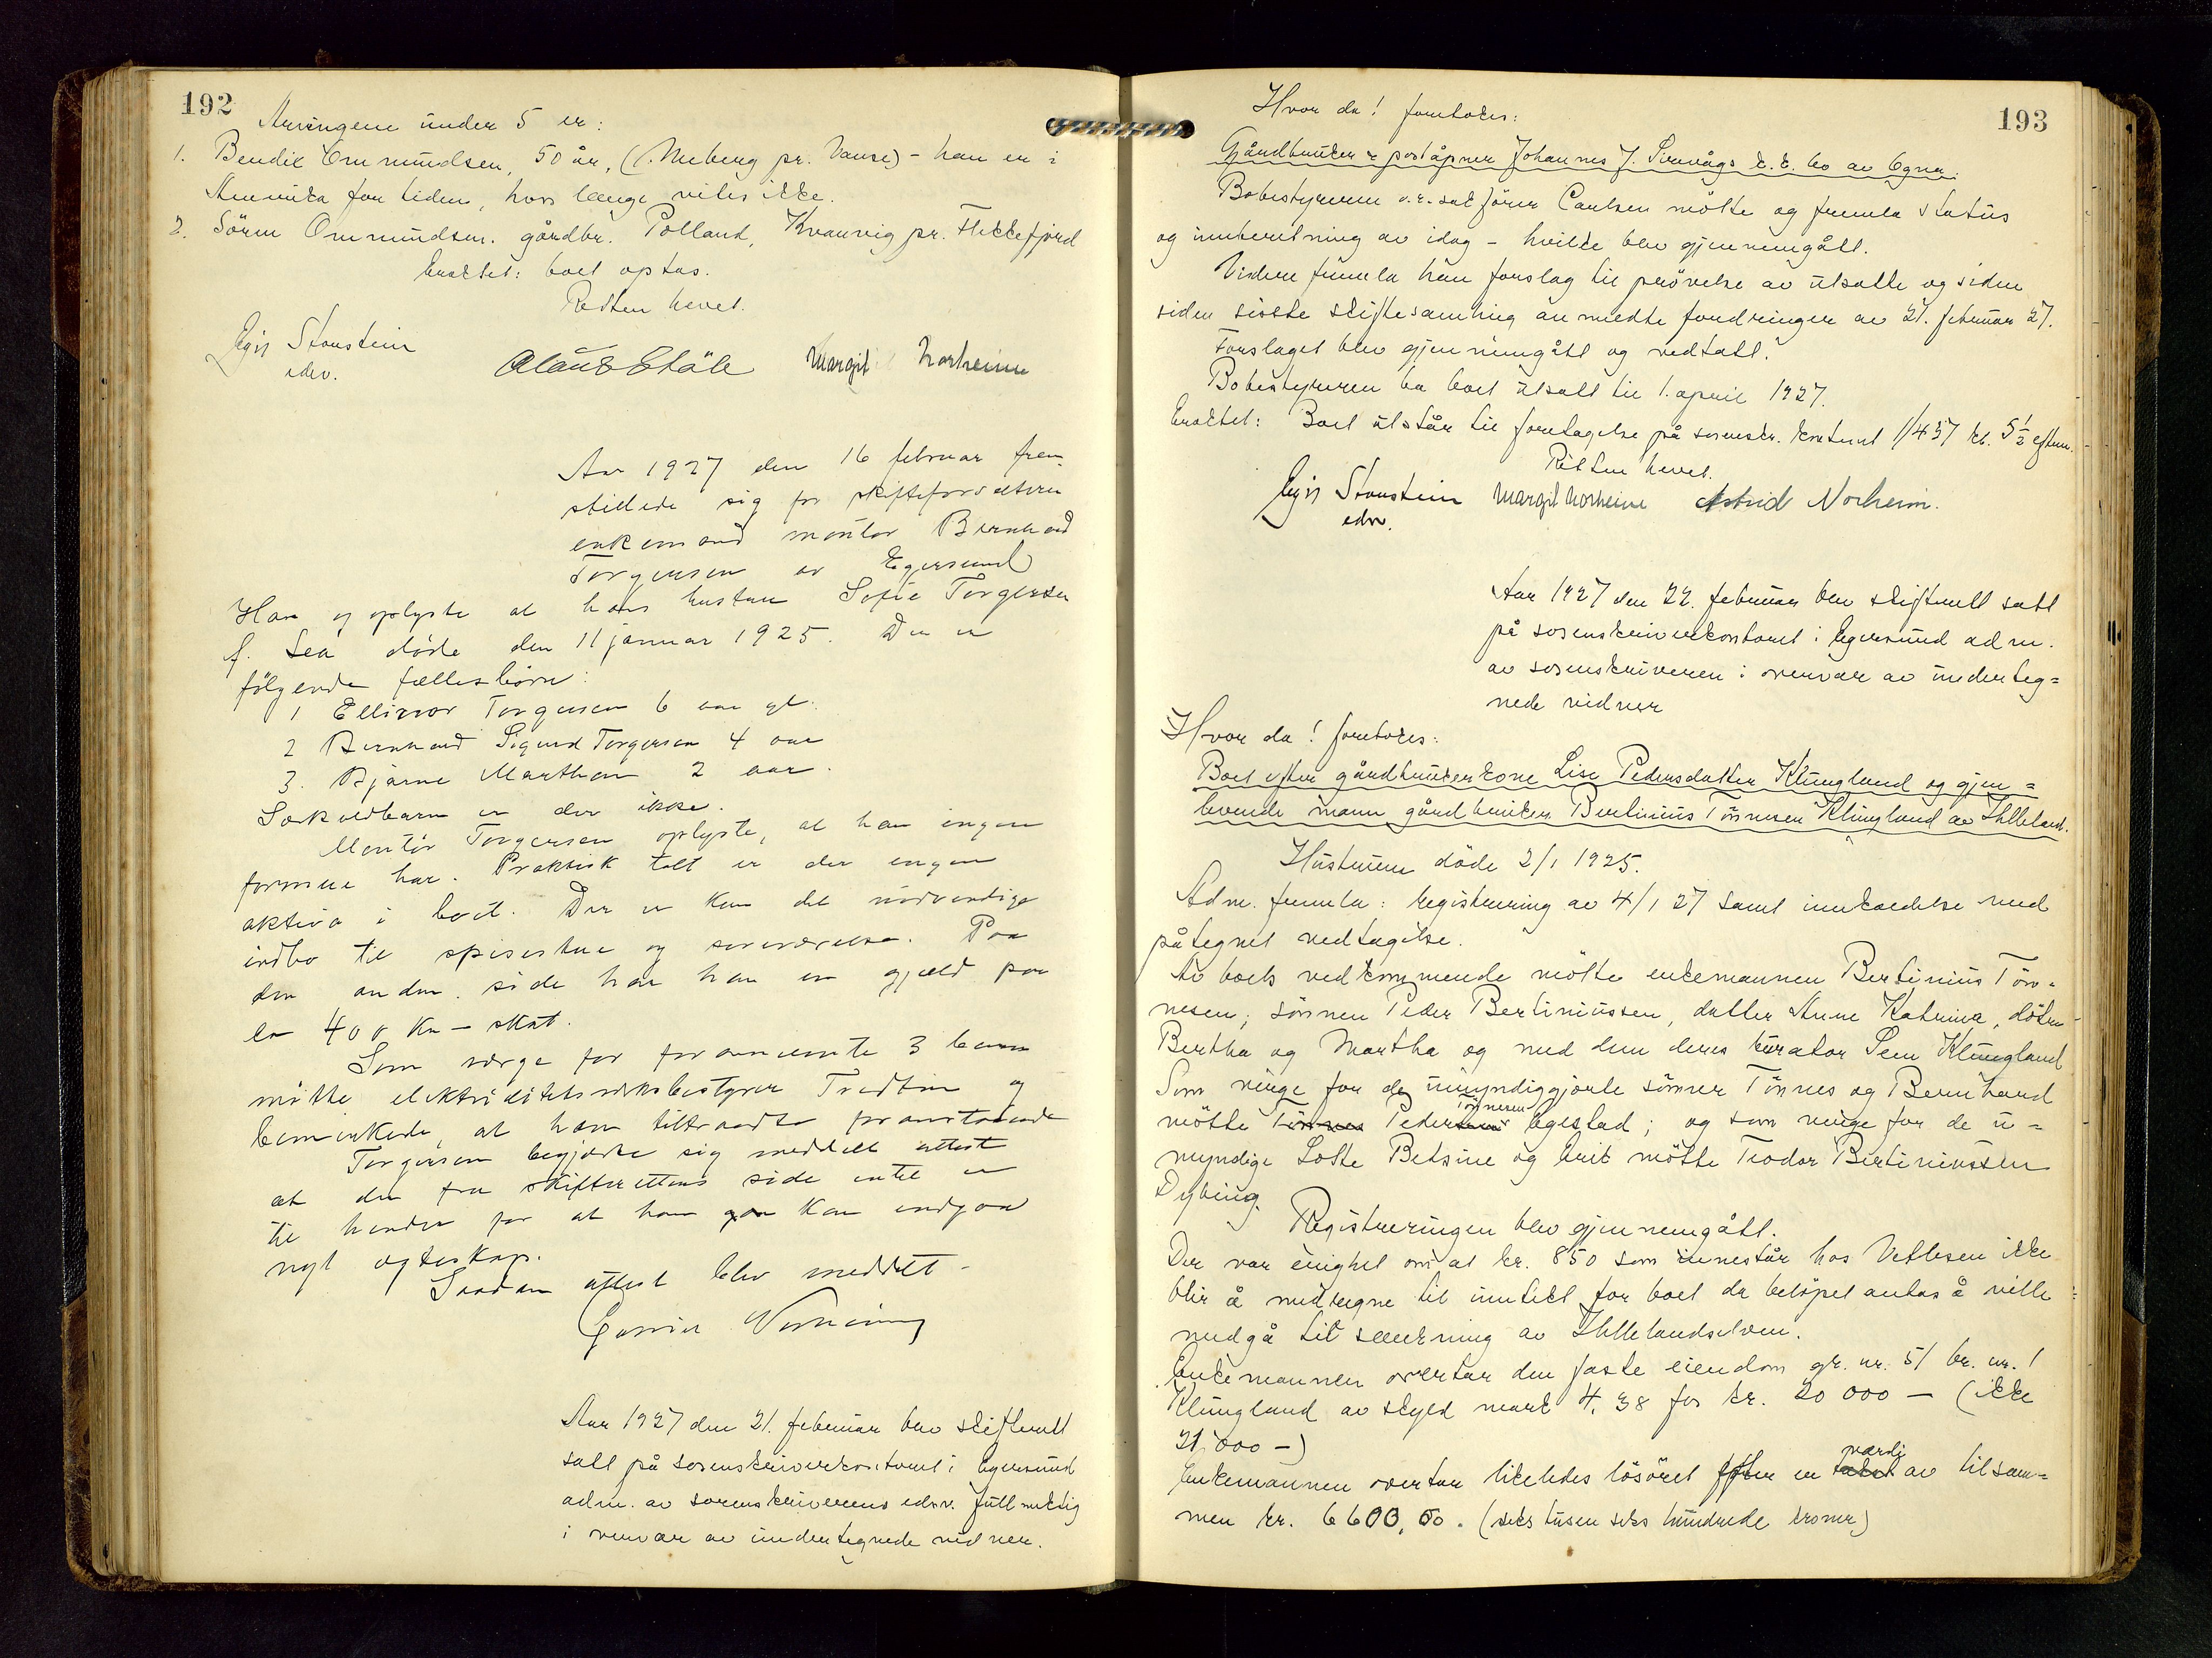 192
Arvingene under 5 er:
1. Bendik Ommundsen, 50 år, (. Meberg pr. Vanse) - han er i
Amerika for tiden, hvor længe vites ikke.
2. Sören Ommundsen. gårdbr. Polland, Kvanvig pr. Flekkefjord
Eraktet: boet optas.
Retten hevet.
Egij Stoustein
edsv.
Margit Norheim
Aar 1927 den 16 februar frem
stillede sig for skifteforvalteren
enkemand montör Bernhard
Torgersen av Egersund
Han og oplyste at hans hustru Sofie Torgersen
f. Lea döde den 11 januar 1925. Der er
fölgende fællesbörn:
1 Ellinor Torgersen 6 aar gl.
2 Bernhard Sigurd Torgersen 4 aar
3. Bjarne Marthon 2 aar.
Særkuldbarn er der ikke.
Montör Torgersen oplyste, at han ingen
formue har. Praktisk talt er der ingen
aktiva i boet. Der er kun det nödvendige
indbo til spisestue og soveværelse. Paa
den anden side har han en gjæld paa
ca 400 Kr - skat.
Som værge for forannævnte 3 barn
mötte elektricitetsverksbestyrer Tredtin og
bemerkede, at han tiltraadte foranstaaende
Torgersen begjærte sig meddelt attest
at der fra skifterettens side intet er
til hinder for at han kan indgaa
nyt egteskap.
Saadan attest blev meddelt -
Aar 1927 den 21. februar blev skifterett
satt på sorenskriverkontoret i Egersund
adm. av sorenskriverens edsv. fullmektig
i overvær av undertegnede vidner.
193
Hvor da! foretokes:
Gårdbruker & poståpner Johannes J. Sirevågs k.k. bo av Ogna.
Bobestyreren o.r.sakförer Carlsen mötte og fremla status
og innberetning av idag - hvilke blev gjennemgått.
Videre fremla han forslag til prövelse av utsatte og siden
siden sisste skiftesamling anmeldte fordringer av 21. februar 27.
Forslaget blev gjennemgått og vedtatt.
Bobestyreren ba boet utsatt til 1. april 1927.
Eraktet: Boet utstår til foretagelse på sorenskr. kontoret 1/4 37 kl. 5 1/2 efterm.
Retten hevet.
Egij Stoustein Margit Norheim Astrid Norheim.
edsv.
Aar 1927 den 22. februar blev skifterett satt
på sorenskriverkontoret i Egersund adm.
av sorenskriveren i overvær av underteg=
nede vidner
Hvor da! foretokes:
Boet efter gårdbrukerkone Lise Pedersdatter Klungland og gjen=
levende mann gårdbruker Bertinius Tönnesen Klungland av Helleland.
Hustruen döde 2/1 1925.
Adm. fremla: Registrering av 4/1 27 samt innkaldelse med
påtegnet vedtagelse.
Av boets vedkommende mötte enkemannen Bertinius Tön=
nesen; sönnen Peder Bertiniussen, datter Anne Katrine, dötre
Bertha og Martha og med dem deres kurator Sem Klungland
Som verge for de umyndiggjorte sönner Tönnes og Bernhard
mötte Tönnes Pedersen Tönnesen Egestad; og som verge for de u=
myndige Lotte Betsine og Berit mötte Teodor Bertiniussen
Dybing.
Registreringen blev gjennemgått.
Der var enighet om at kr. 850 som innestår hos Vetlesen ikke
blir å medregne til inntekt for boet da belöpet antas å ville
medgå til sænkning av Hellelandselven.
Enkemannen overtar den faste eiendom gr. nr. 51 br. nr. 1
Klungland av skyld mark 4,38 for kr. 20 000 - (ikke
21,000 -)
Enkemannen overtar likeledes lösöret efter en takst værdi av tilsam=
men kr. 6600,00. (seks tusen seks hundrede kroner)